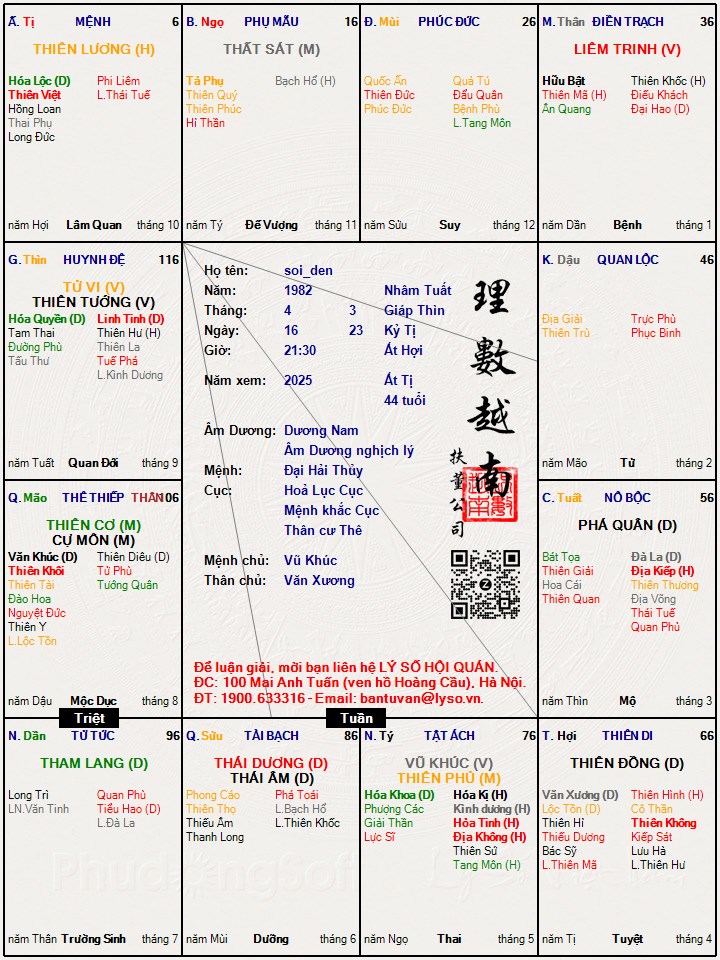 Ấ. Tị MỆNH 6
THIÊN LƯƠNG (H)
Hóa Lộc (D) Phi Liêm
Thiên Việt L.Thái Tuế
Hồng Loan
Thai Phụ
Long Đức
năm Hợi Lâm Quan tháng 10
B. Ngọ PHỤ MẪU 16
THẤT SÁT (M)
Tả Phụ Bạch Hổ (H)
Thiên Quý
Thiên Phúc
Hỉ Thần
năm Tý Đế Vượng tháng 11
Đ. Mùi PHÚC ĐỨC 26
Quốc Ấn Quả Tú
Thiên Đức Đẩu Quân
Phúc Đức Bệnh Phù
L.Tang Môn
năm Sửu Suy tháng 12
M. Thân ĐIỀN TRẠCH 36
LIÊM TRINH (V)
Hữu Bật Thiên Khốc (H)
Thiên Mã (H) Điếu Khách
Ân Quang Đại Hao (D)
năm Dần Bệnh tháng 1
G. Thìn HUYNH ĐỆ 116
TỬ VI (V)
THIÊN TƯỚNG (V)
Hóa Quyền (D) Linh Tinh (D)
Tam Thai Thiên Hư (H)
Đường Phù Thiên La
Tấu Thư Tuế Phá
L.Kình Dương
năm Tuất Quan Đới tháng 9
Họ tên: soi_den
Năm: 1982 Nhâm Tuất
Tháng: 4 3 Giáp Thìn
Ngày: 16 23 Kỷ Tị
Giờ: 21:30 Ất Hợi
Năm xem: 2025 Ất Tị
44 tuổi
Âm Dương: Dương Nam
Âm Dương nghịch lý
Mệnh: Đại Hải Thủy
Cục: Hoả Lục Cục
Mệnh khắc Cục
Thân cư Thê
Mệnh chủ: Vũ Khúc
Thân chủ: Văn Xương
理數越南
扶董公司
Để luận giải, mời bạn liên hệ LÝ SỐ HỘI QUÁN.
ĐC: 100 Mai Anh Tuấn (ven hồ Hoàng Cầu), Hà Nội.
ĐT: 1900.633316 - Email: bantuvan@lyso.vn.
K. Dậu QUAN LỘC 46
Địa Giải Trực Phù
Thiên Trù Phục Binh
năm Mão Tử tháng 2
Q. Mão THÊ THIẾP THÂN 106
THIÊN CƠ (M)
CỰ MÔN (M)
Văn Khúc (D) Thiên Diêu (D)
Thiên Khôi Tử Phù
Thiên Tài Tướng Quân
Đào Hoa
Nguyệt Đức
Thiên Y
L.Lộc Tồn
năm Dậu Mộc Dục tháng 8
C. Tuất NÔ BỘC 56
PHÁ QUÂN (D)
Bát Tọa Đà La (D)
Thiên Giải Địa Kiếp (H)
Hoa Cái Thiên Thương
Thiên Quan Địa Võng
Thái Tuế
Quan Phủ
năm Thìn Mộ tháng 3
Triệt
Tuần
N. Dần TỬ TỨC 96
THAM LANG (D)
Long Trì Quan Phù
LN.Văn Tinh Tiểu Hao (D)
L.Đà La
năm Thân Trường Sinh tháng 7
Q. Sửu TÀI BẠCH 86
THÁI DƯƠNG (D)
THÁI ÂM (D)
Phong Cáo Phá Toái
Thiên Thọ L.Bạch Hổ
Thiếu Âm L.Thiên Khốc
Thanh Long
năm Mùi Dưỡng tháng 6
N. Tý TẬT ÁCH 76
VŨ KHÚC (V)
THIÊN PHỦ (M)
Hóa Khoa (D) Hóa Kị (H)
Phượng Các Kình dương (H)
Giải Thần Hỏa Tinh (H)
Lực Sĩ Địa Không (H)
Thiên Sứ
Tang Môn (H)
năm Ngọ Thai tháng 5
T. Hợi THIÊN DI 66
THIÊN ĐỒNG (D)
Văn Xương (D) Thiên Hình (H)
Lộc Tồn (D) Cô Thần
Thiên Hỉ Thiên Không
Thiếu Dương Kiếp Sát
Bác Sỹ Lưu Hà
L.Thiên Mã L.Thiên Hư
năm Tị Tuyệt tháng 4